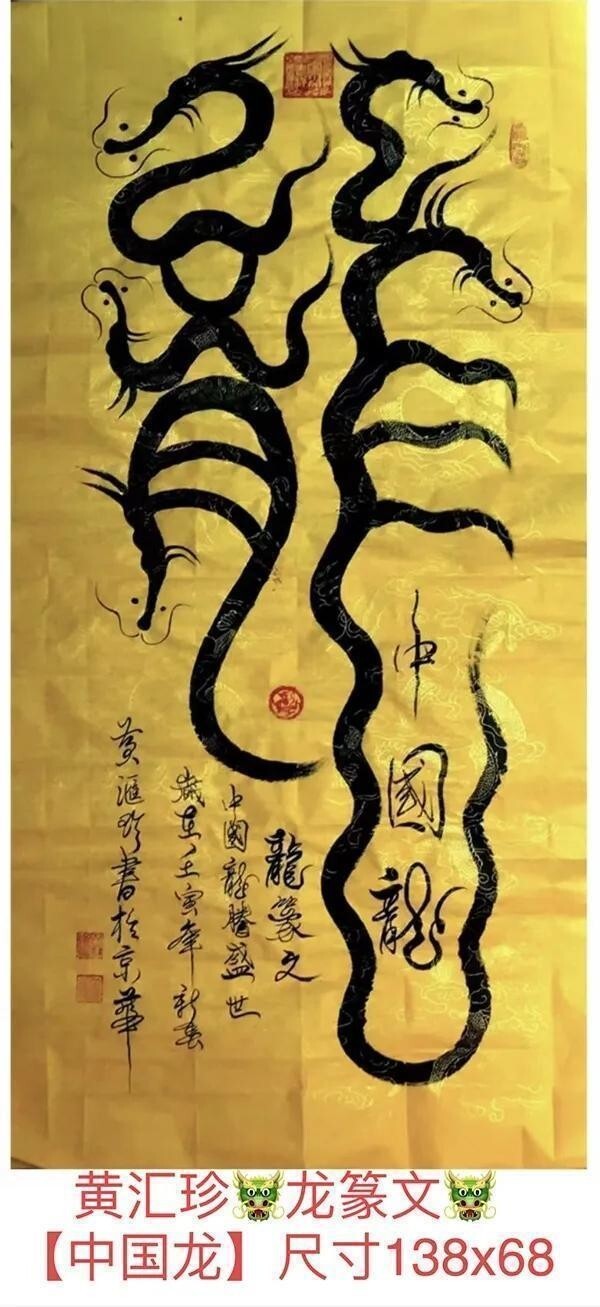 龍
中國龍
龍篆文
中國龍騰盛世
歲在壬寅年新春
黄滙珍書於京華
黄汇珍🐲龙篆文🐲
【中国龙】尺寸138x68